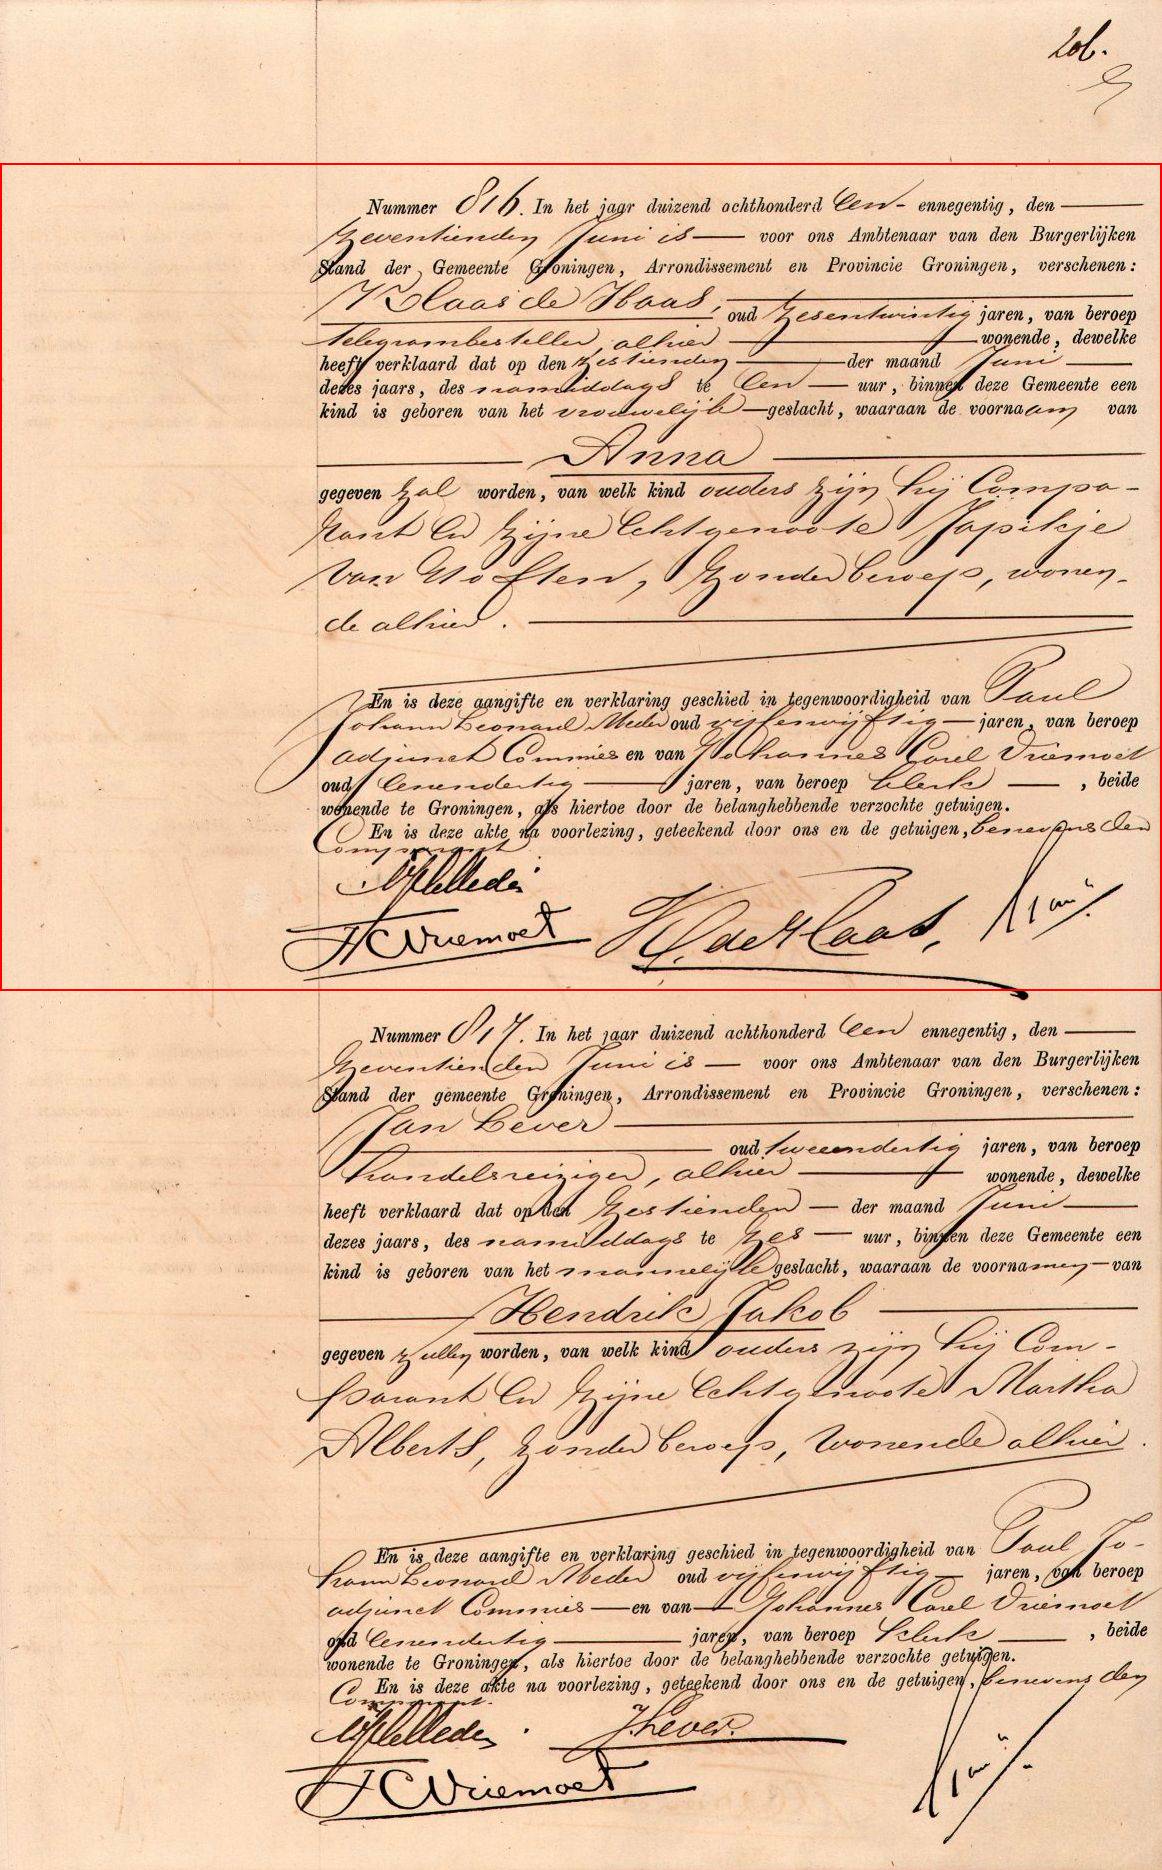 206.
Nummer 816. In het jaar duizend achthonderd een- ennegentig, den
zeventienden Juni is voor ons Ambtenaar van den Burgerlijken
Stand der Gemeente Groningen, Arrondissement en Provincie Groningen, verschenen:
Klaas de Haas,
oud zesentwintig jaren, van beroep
telegrambesteller, alhier wonende, dewelke
heeft verklaard dat op den zestienden der maand Juni
dezes jaars, des namiddags te een uur, binnen deze Gemeente een
kind is geboren van het vrouwelijk geslacht, waaraan de voornaam van
Anna
gegeven zal worden, van welk kind ouders zijn hij Compa-
rant en zijne Echtgenoote Japikje
van Hoften, zonder beroep, wonen-
de alhier.
En is deze aangifte en verklaring geschied in tegenwoordigheid van Paul
Johann Leonard Meder oud vijfenvijftig jaren, van beroep
adjunct Commies en van Johannes Carel Vriemoet
oud eenendertig jaren, van beroep klerk, beide
wonende te Groningen, als hiertoe door de belanghebbende verzochte getuigen.
En is deze akte na voorlezing, geteekend door ons en de getuigen, benevens den
Comparant
JC Vriemoet K. de Haas,
Nummer 817. In het jaar duizend achthonderd een ennegentig, den
zeventienden Juni is voor ons Ambtenaar van den Burgerlijken
Stand der gemeente Groningen, Arrondissement en Provincie Groningen, verschenen:
Jan Lever
oud tweeendertig jaren, van beroep
handelsreiziger, alhier wonende, dewelke
heeft verklaard dat op den zestienden der maand Juni
dezes jaars, des namiddags te zes uur, binnen deze Gemeente een
kind is geboren van het mannelijk geslacht, waaraan de voornamen van
Hendrik Jakob
gegeven zullen worden, van welk kind ouders zijn hij Com-
parant en zijne Echtgenoote Martha
Alberts, zonder beroep, wonende alhier.
En is deze aangifte en verklaring geschied in tegenwoordigheid van Paul Jo-
hann Leonard Meder oud vijfenvijftig jaren, van beroep
adjunct Commies en van Johannes Carel Vriemoet
oud eenendertig jaren, van beroep klerk, beide
wonende te Groningen, als hiertoe door de belanghebbende verzochte getuigen.
En is deze akte na voorlezing, geteekend door ons en de getuigen, benevens den
Comparant.
J. Lever.
JC Vriemoet